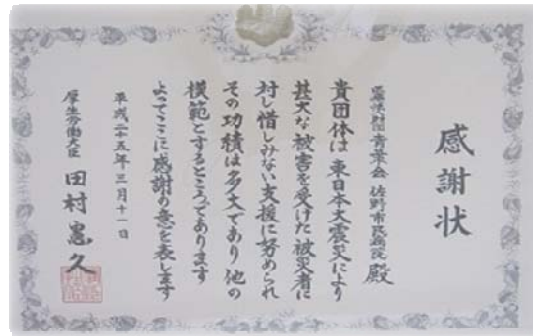 感謝状
医療法財団青葉会 佐野市民病院 殿
貴団体は東日本大震災により
甚大な被害を受けた被災者に
対し惜しみない支援に努められ
その功績は多大であり他の
模範とするところであります
よってここに感謝の意を表します
平成二十五年三月十一日
厚生労働大臣 田村憲久